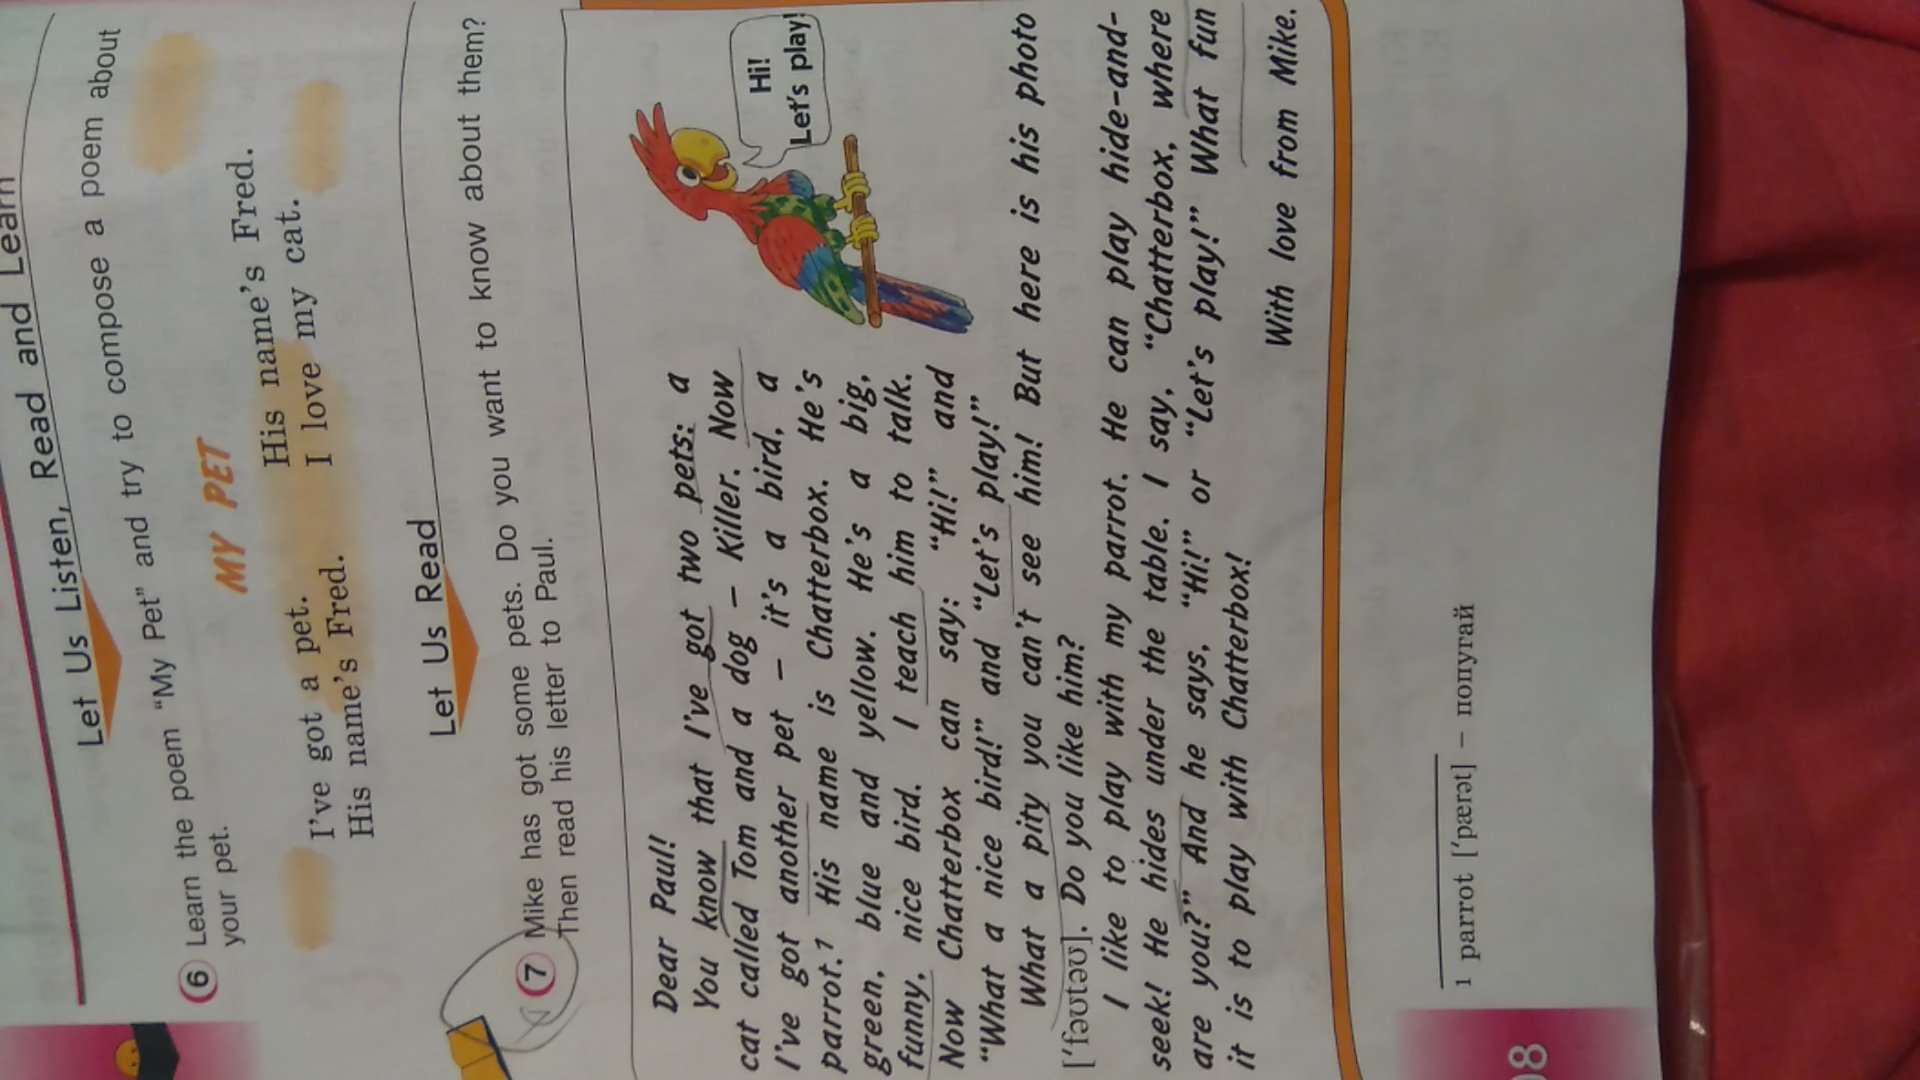 Let Us Listen, Read and Learn
6 Learn the poem “My Pet” and try to compose a poem about
your pet.
MY PET
I’ve got a pet. His name’s Fred.
His name’s Fred. I love my cat.
Let Us Read
7 Mike has got some pets. Do you want to know about them?
Then read his letter to Paul.
Dear Paul!
You know that I’ve got two pets: a
cat called Tom and a dog – Killer. Now
I’ve got another pet – it’s a bird, a
parrot.1 His name is Chatterbox. He’s
green, blue and yellow. He’s a big,
funny, nice bird. I teach him to talk.
Now Chatterbox can say: “Hi!” and
“What a nice bird!” and “Let’s play!”
Hi!
Let’s play!
What a pity you can’t see him! But here is his photo
[ˈfəʊtəʊ]. Do you like him?
I like to play with my parrot. He can play hide-and-
seek! He hides under the table. I say, “Chatterbox, where
are you?” And he says, “Hi!” or “Let’s play!” What fun
it is to play with Chatterbox!
With love from Mike.
1 parrot [ˈpærət] – попугай